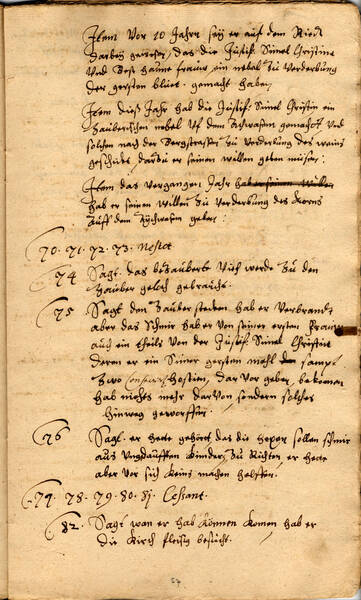 Item Vor 10 Jahrn sey er auf dem Rieß
darbey gewesen, das die Justif: Simel Christine
Und Best Hanne frauw, ein nebel zu Verderbung
der gersten bluet gemacht haben
Item dieß Jahr hab die Justif: Simel Christin ein
Zauberischen nebel Uf dem gemacht Und
solchen nach der Bergstrassen zu Verderbung des weins
geschickt, darzu er seinen willen geben müsen:
Item das Vergangen Jahr hab er seinen Willen
hab er seinen Willen zu Verderbung des Korns
Auff dem geben:
70. 71. 72. 73. Nescit
74 Sagt. das bezauberte Vich werde zu den
Zauber gebraucht.
75 Sagt den Zauber stecken hab er Verbrandt
aber das Schmir hab er Von seiner ersten frauw
auch ein theils Von der Justif: Simel Christine
deren er ein Simer gersten mehl sampt
Zwo Hostien, dar Vor geben, bekomen
hab nichts mehr darVon sondern solches
hinweg geworffen.
76 Sagt. er hette gehört das die hexen sollen schmir
aus Ungdaufften Kinder Zu Richten, er hette
aber Vor sich keins machen helffen.
77. 78. 79. 80. 81. Cessant.
82. Sagt wan er hab können komen hab er
die Kirch fleisig besucht.